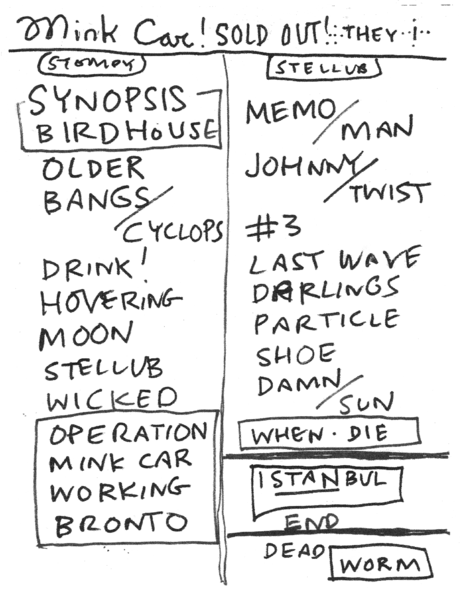 Mink Car! SOLD OUT! THEY
STOMPY
SYNOPSIS
BIRDHOUSE
OLDER
BANGS/
CYCLOPS
DRINK!
HOVERING
MOON
STELLUB
WICKED
OPERATION
MINK CAR
WORKING
BRONTO
STELLUB
MEMO/
MAN
JOHNNY/
TWIST
#3
LAST WAVE
DARLINGS
PARTICLE
SHOE
DAMN/
SUN
WHEN · DIE
ISTANBUL
END
DEAD
WORM